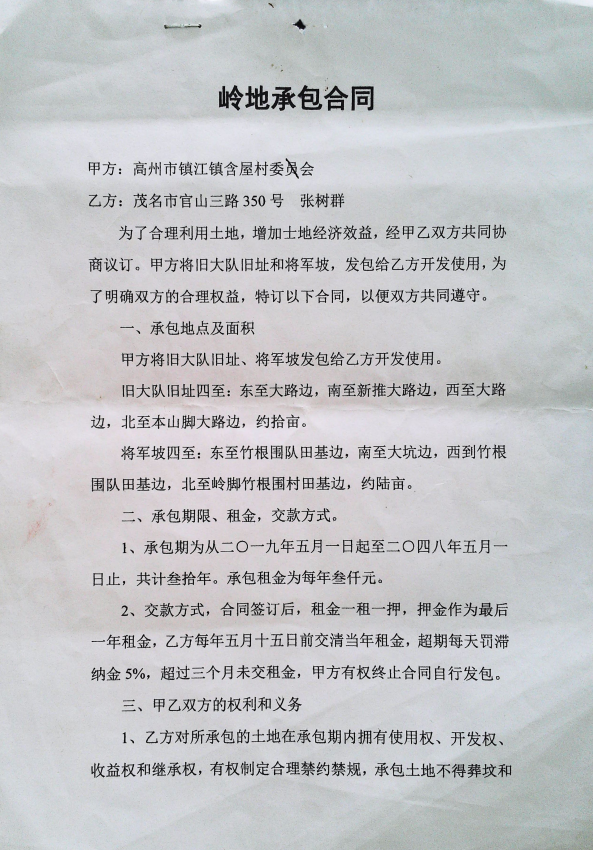 岭地承包合同
甲方：高州市镇江镇含屋村委员会
乙方：茂名市官山三路350号 张树群
为了合理利用土地，增加士地经济效益，经甲乙双方共同协
商议订。甲方将旧大队旧址和将军坡，发包给乙方开发使用，为
了明确双方的合理权益，特订以下合同，以便双方共同遵守。
一、承包地点及面积
甲方将旧大队旧址、将军坡发包给乙方开发使用。
旧大队旧址四至：东至大路边，南至新推大路边，西至大路
边，北至本山脚大路边，约拾亩。
将军坡四至：东至竹根围队田基边，南至大坑边，西到竹根
围队田基边，北至岭脚竹根围村田基边，约陆亩。
二、承包期限、租金，交款方式。
1、承包期为从二〇一九年五月一日起至二〇四八年五月一
日止，共计叁拾年。承包租金为每年叁仟元。
2、交款方式，合同签订后，租金一租一押，押金作为最后
一年租金，乙方每年五月十五日前交清当年租金，超期每天罚滞
纳金5%，超过三个月未交租金，甲方有权终止合同自行发包。
三、甲乙双方的权利和义务
1、乙方对所承包的土地在承包期内拥有使用权、开发权、
收益权和继承权，有权制定合理禁约禁规，承包土地不得葬坟和